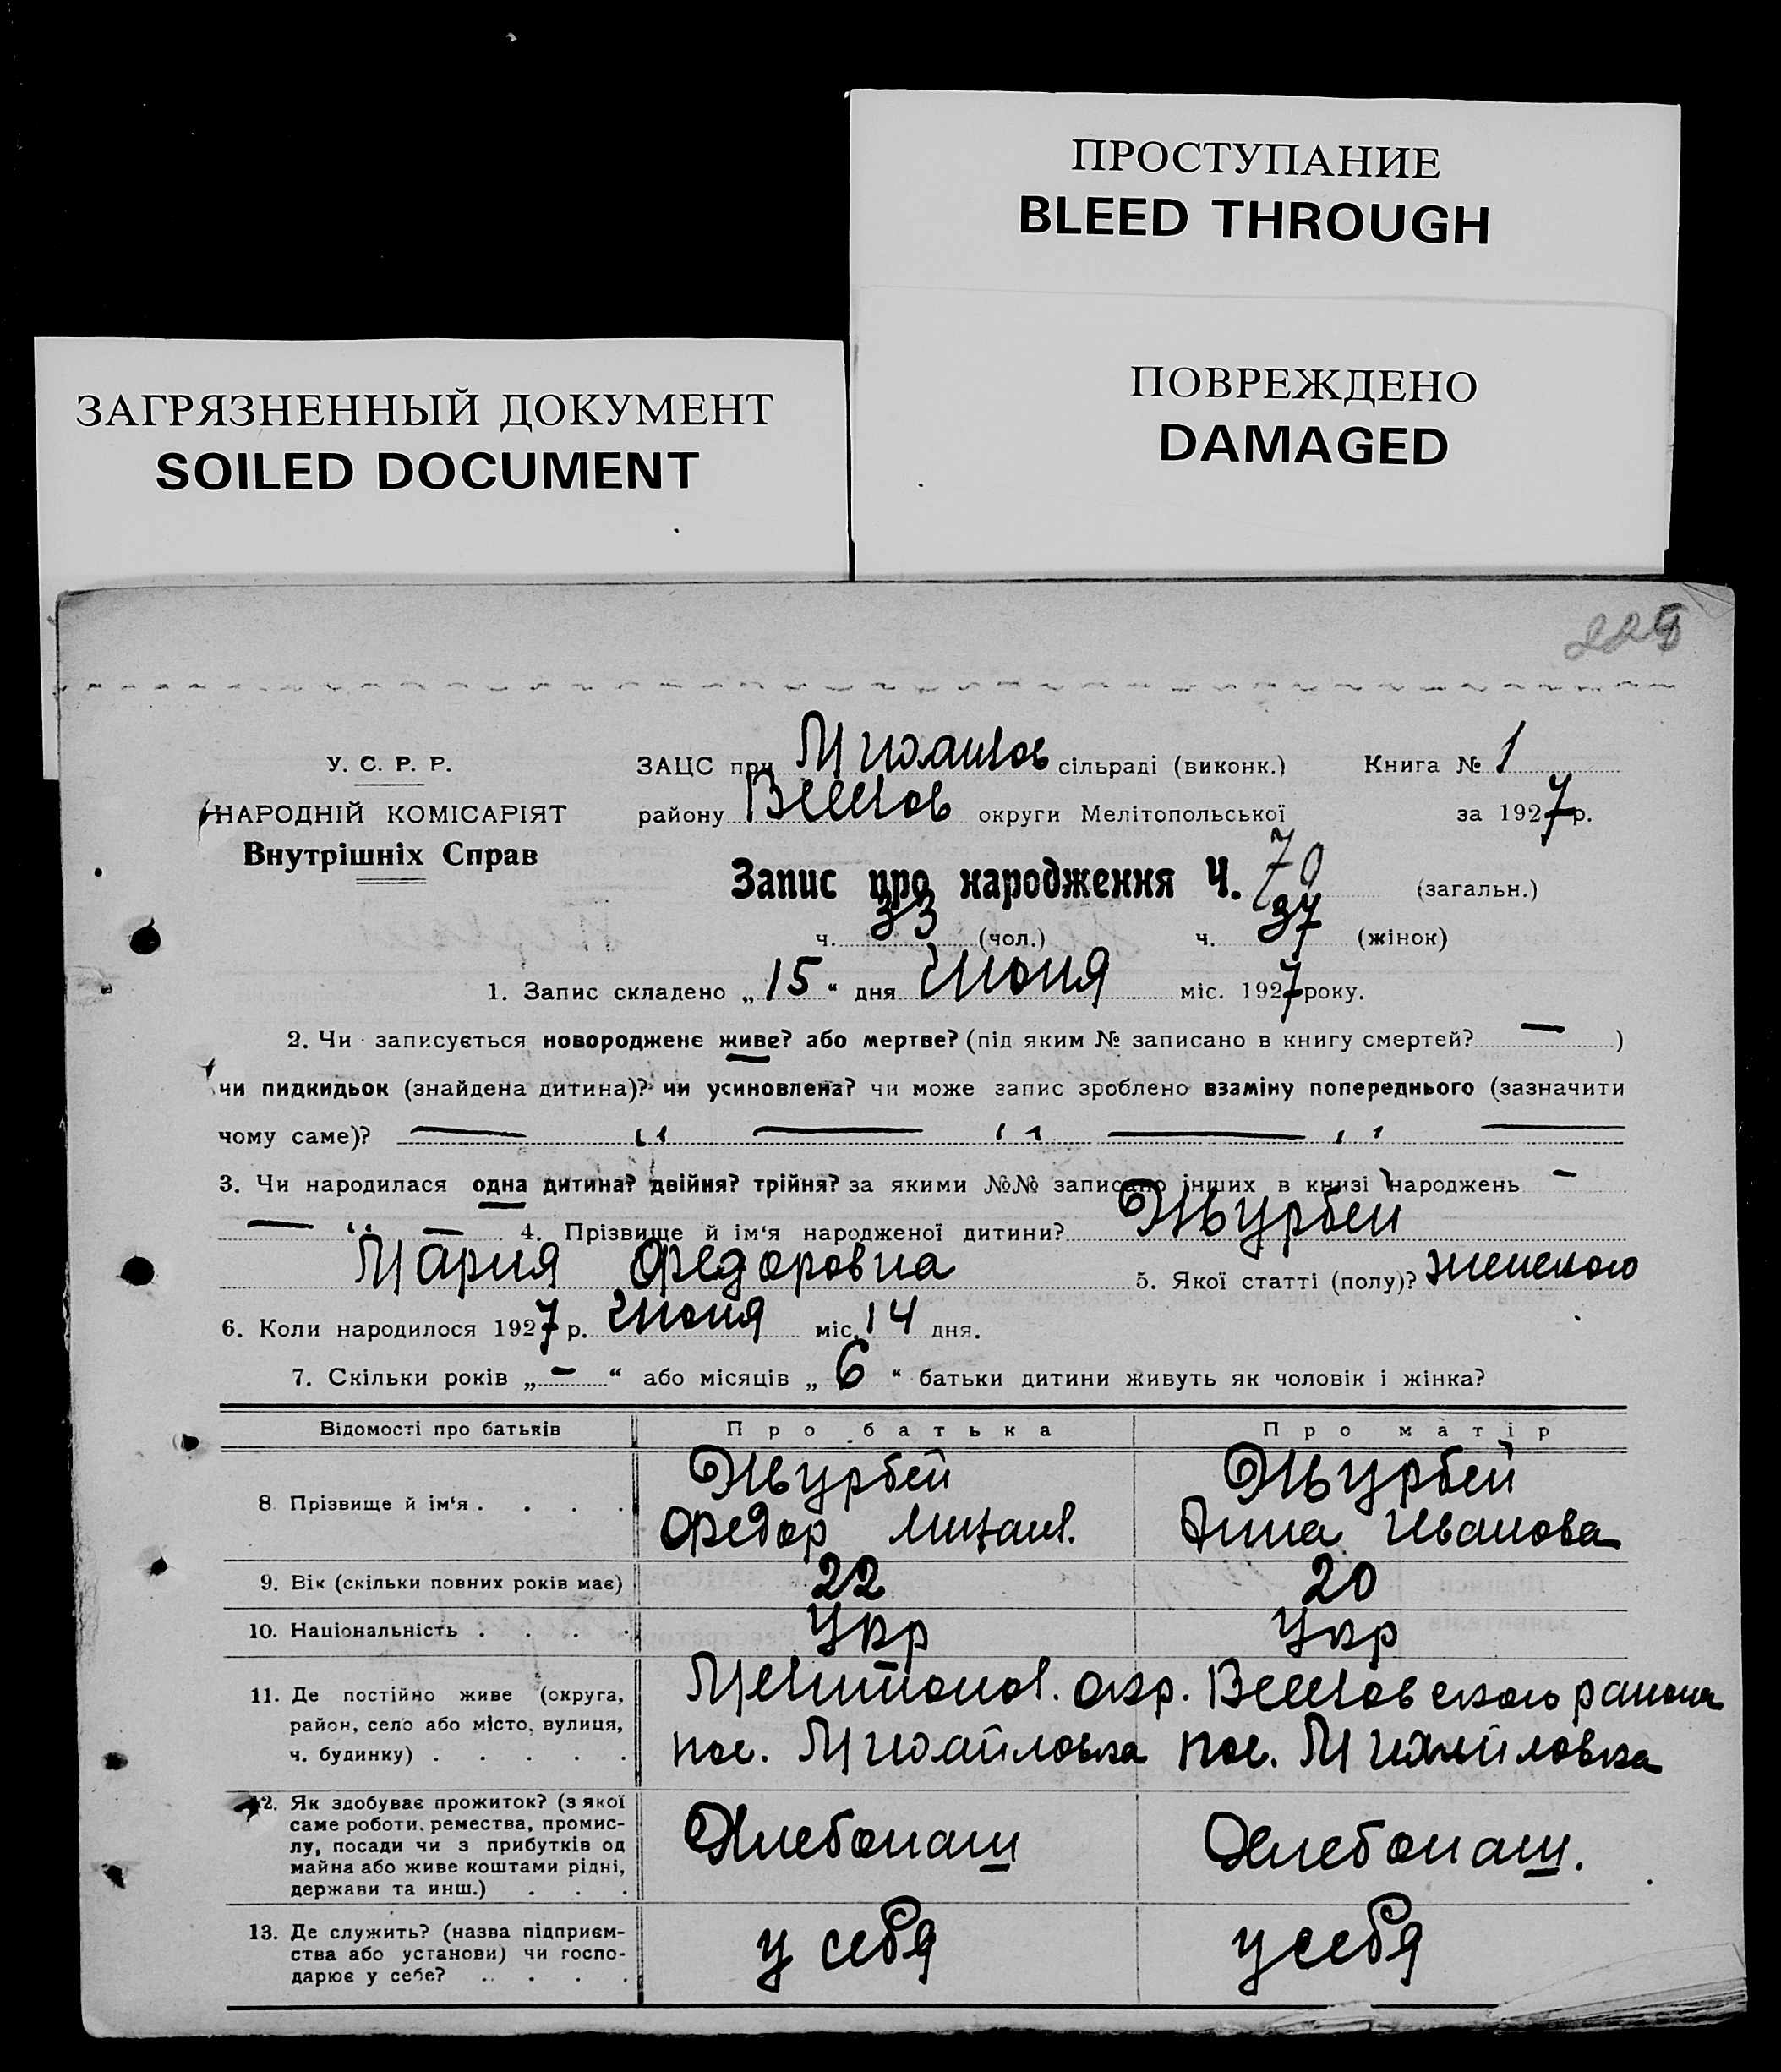 ПРОСТУПАНИЕ
BLEED THROUGH
ПОВРЕЖДЕНО
DAMAGED
ЗАГРЯЗНЕННЫЙ ДОКУМЕНТ
SOILED DOCUMENT
У. С. Р. Р.
НАРОДНІЙ КОМІСАРІЯТ
Внутрішніх Справ
ЗАЦС при Михайлов сільраді (виконк.) Книга № 1
району Весьлов округи Мелітопольської за 1927 р.
Запис про народження Ч. 70 (загальн.)
ч. 33 (чол.) ч. 37 (жінок)
1. Запис складено „15“ дня Июня міс. 1927 року.
2. Чи записується новороджене живе? або мертве? (під яким № записано в книгу смертей? — )
чи пидкидьок (знайдена дитина)? чи усиновлена? чи може запис зроблено взаміну попереднього (зазначити
чому саме)? — „ — „ — „ —
3. Чи народилася одна дитина? двійня? трійня? за якими №№ записано інших в книзі народжень —
— „ — 4. Прізвище й ім‘я народженої дитини? Журбей
Мария Федоровна 5. Якої статті (полу)? женского
6. Коли народилося 1927 р. Июня міс. 14 дня.
7. Скільки років „—“ або місяців „6“ батьки дитини живуть як чоловік і жінка?
Відомості про батьків Про батька Про матір
8 Прізвище й ім‘я . . . . Журбей Журбей
Федор Михайл. Анна Иванова
9. Вік (скільки повних років має) 22 20
10. Національність . . . . Укр Укр
11. Де постійно живе (округа,
район, село або місто, вулиця,
ч. будинку) . . . . .
Мелитопол. окр. района
пос. Михайловка пос. Михайловка
12. Як здобуває прожиток? (з якої
саме роботи, ремества, промис-
лу, посади чи з прибутків од
майна або живе коштами рідні,
держави та инш.) . . .
Хлебопаш Хлебопаш.
13. Де служить? (назва підприєм-
ства або установи) чи госпо-
дарює у себе? . . . .
у себя у себя